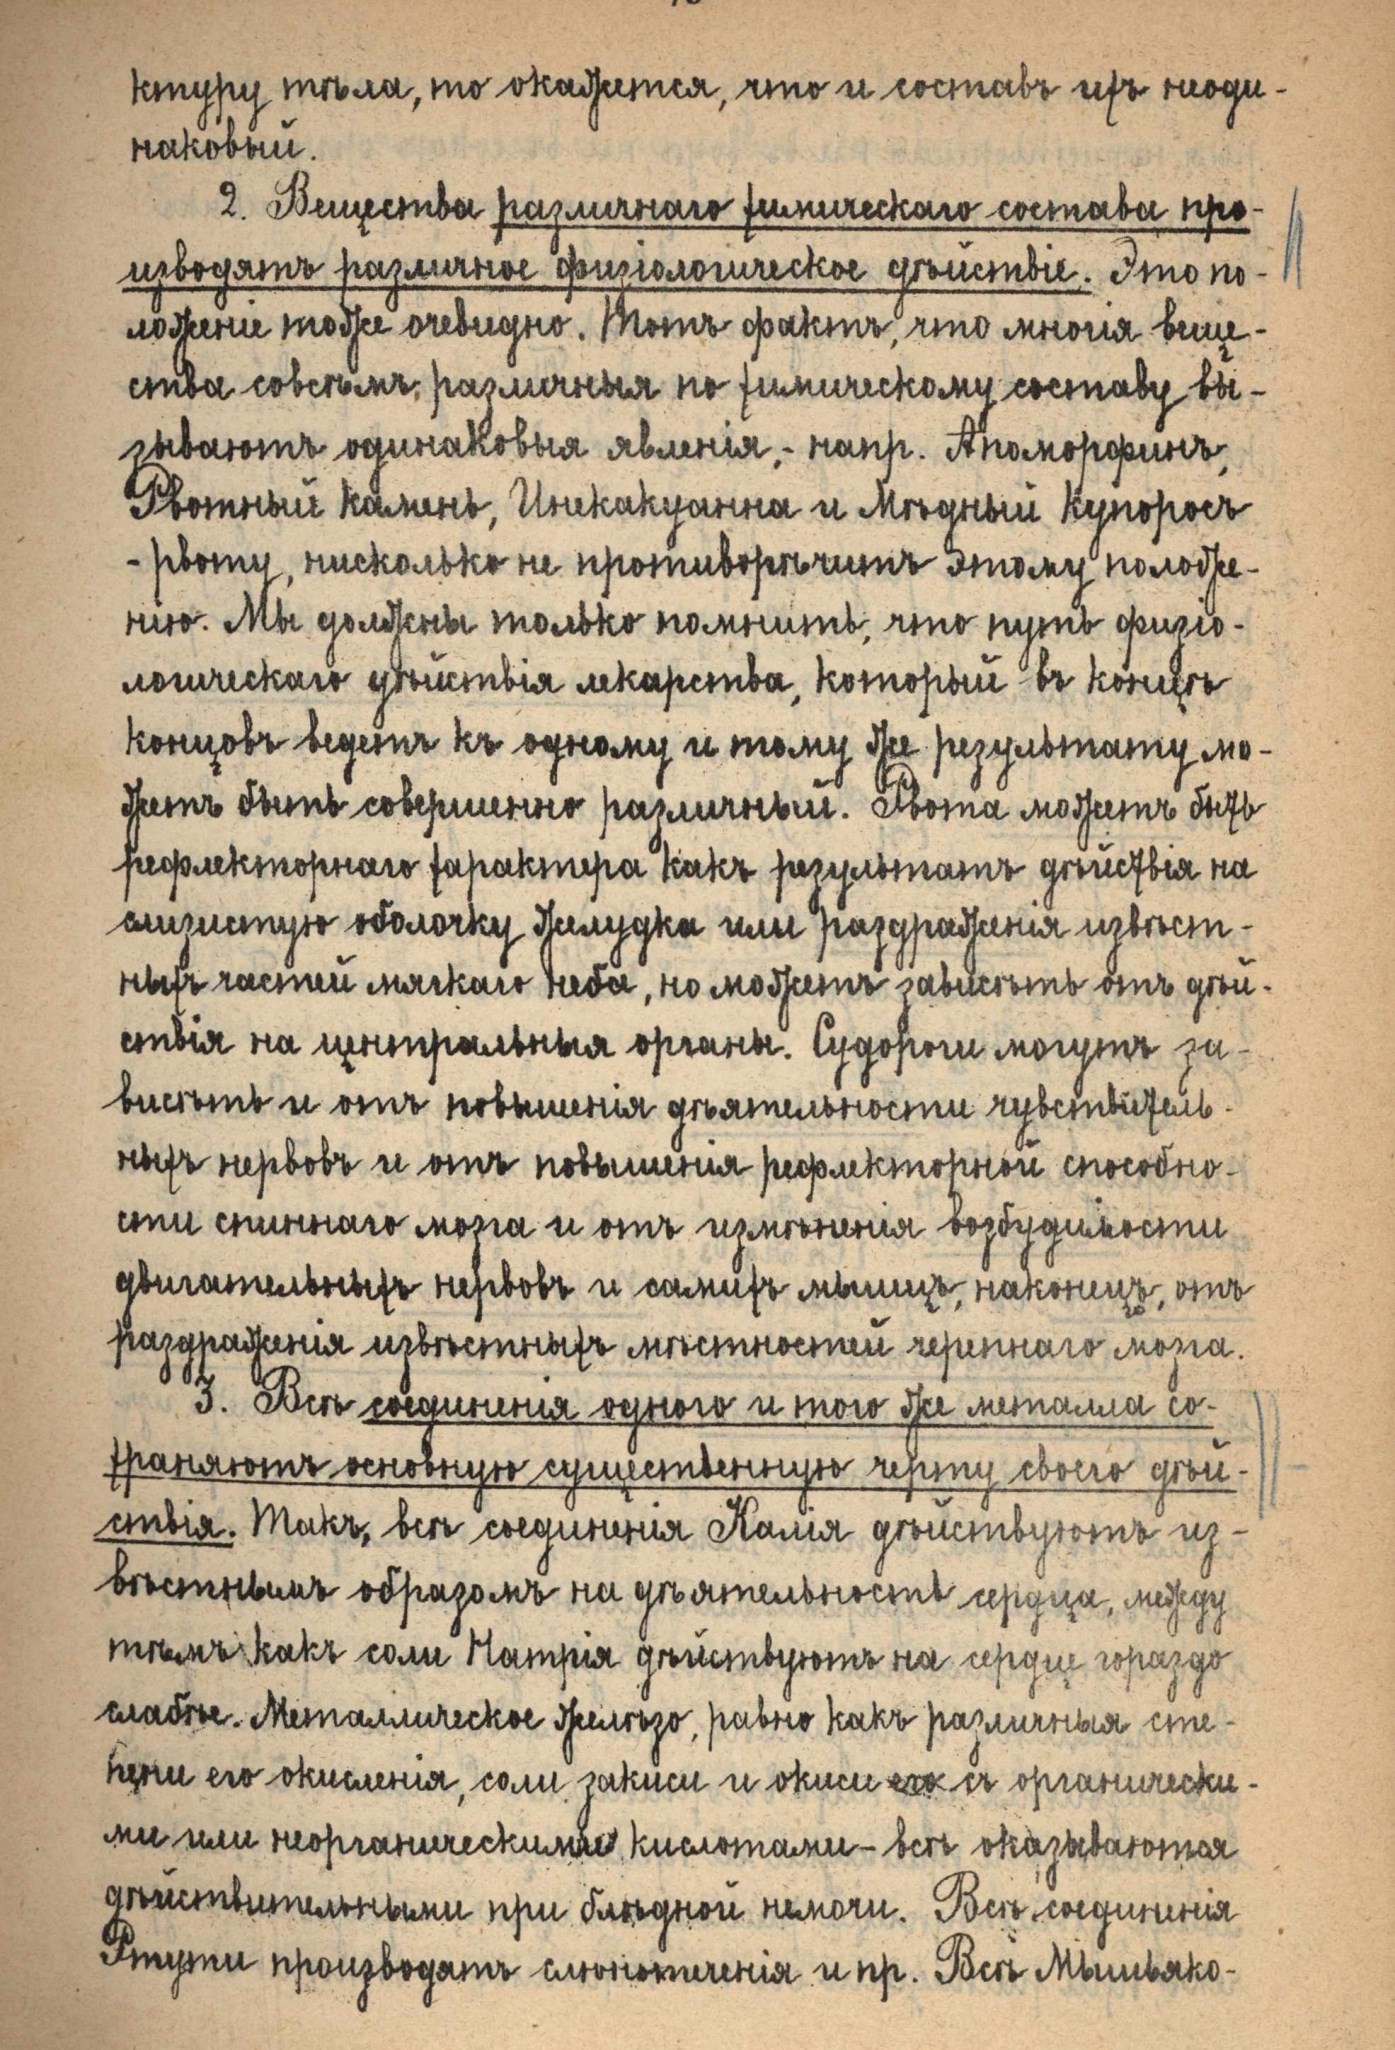 ктуру тѣла, то окажется, что и составъ ихъ неоди-
наковый.
2. Вещества различнаго химическаго состава про-
изводятъ различное физіологическое дѣйствіе. Это по-
ложеніе тоже очевидно. Тотъ фактъ, что многія веще-
ства совсѣмъ, различныя по химическому составу вы-
зываютъ одинаковыя явленія,- напр. Апоморфинъ,
Рвотный камень, Ипекакуанна и Мѣдный купоросъ
- рвоту, нисколько не противорѣчитъ этому положе-
нію. Мы должны только помнить, что путь физіо-
логическаго дѣйствія лекарства, который въ концѣ
концовъ ведетъ къ одному и тому же результату мо-
жетъ быть совершенно различный. Рвота можетъ быть
рефлекторнаго характера какъ результатъ дѣйствія на
слизистую оболочку желудка или раздраженія извѣст-
ныхъ частей мягкаго неба, но можетъ зависѣть отъ дѣй-
ствія на центральныя органы. Судороги могутъ за-
висѣть и отъ повышенія дѣятельности чувствитель-
ныхъ нервовъ и отъ повышенія рефлекторной способно-
сти спиннаго мозга и отъ измѣненія возбудимости
двигательныхъ нервовъ и самихъ мышцъ, наконецъ, отъ
раздраженія извѣстныхъ мѣстностей черепнаго мозга.
3. Всѣ соединенія одного и того же металла со-
храняютъ основную существенную черту своего дѣй-
ствія. Такъ, всѣ соединенія Калія дѣйствуютъ из-
вѣстнымъ образомъ на дѣятельность сердца, между
тѣмъ какъ соли Натрія дѣйствуютъ на сердце гораздо
слабѣе. Металлическое желѣзо, равно какъ различныя сте-
пени его окисленія, соли закиси и окиси его съ органически-
ми или неорганическими кислотами - всѣ оказываются
дѣйствительными при блѣдной немочи. Всѣ соединенія
Ртути производятъ слюнотеченія и пр. Всѣ Мышьяко-